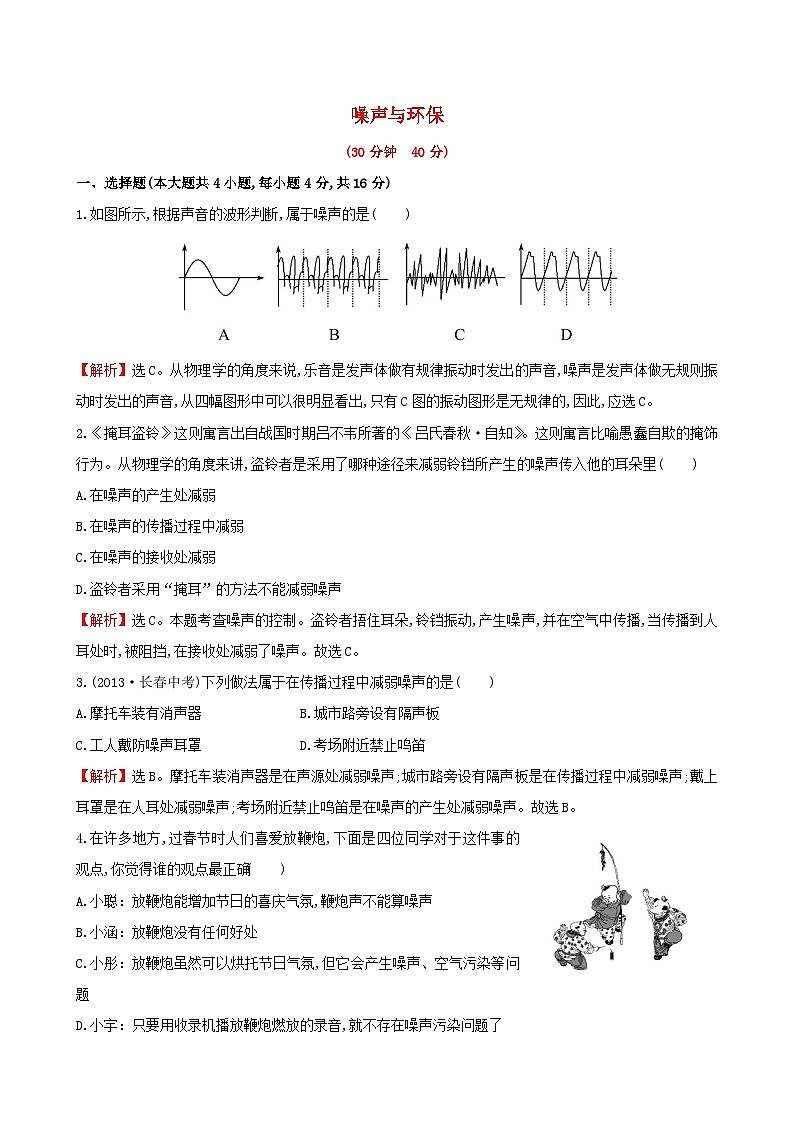 噪声与环保
(30分钟 40分)
一、选择题(本大题共4小题,每小题4分,共16分)
1.如图所示,根据声音的波形判断,属于噪声的是( )
A B C D
【解析】选C。从物理学的角度来说,乐音是发声体做有规律振动时发出的声音,噪声是发声体做无规则振
动时发出的声音,从四幅图形中可以很明显看出,只有C图的振动图形是无规律的,因此,应选C。
2.《掩耳盗铃》这则寓言出自战国时期吕不韦所著的《吕氏春秋·自知》。这则寓言比喻愚蠢自欺的掩饰
行为。从物理学的角度来讲,盗铃者是采用了哪种途径来减弱铃铛所产生的噪声传入他的耳朵里( )
A.在噪声的产生处减弱
B.在噪声的传播过程中减弱
C.在噪声的接收处减弱
D.盗铃者采用“掩耳”的方法不能减弱噪声
【解析】选C。本题考查噪声的控制。盗铃者捂住耳朵,铃铛振动,产生噪声,并在空气中传播,当传播到人
耳处时,被阻挡,在接收处减弱了噪声。故选C。
3.(2013·长春中考)下列做法属于在传播过程中减弱噪声的是( )
A.摩托车装有消声器 B.城市路旁设有隔声板
C.工人戴防噪声耳罩 D.考场附近禁止鸣笛
【解析】选B。摩托车装消声器是在声源处减弱噪声;城市路旁设有隔声板是在传播过程中减弱噪声;戴上
耳罩是在人耳处减弱噪声;考场附近禁止鸣笛是在噪声的产生处减弱噪声。故选B。
4.在许多地方,过春节时人们喜爱放鞭炮,下面是四位同学对于这件事的
观点,你觉得谁的观点最正确 )
A.小聪：放鞭炮能增加节日的喜庆气氛,鞭炮声不能算噪声
B.小涵：放鞭炮没有任何好处
C.小彤：放鞭炮虽然可以烘托节日气氛,但它会产生噪声、空气污染等问
题
D.小宇：只要用收录机播放鞭炮燃放的录音,就不存在噪声污染问题了